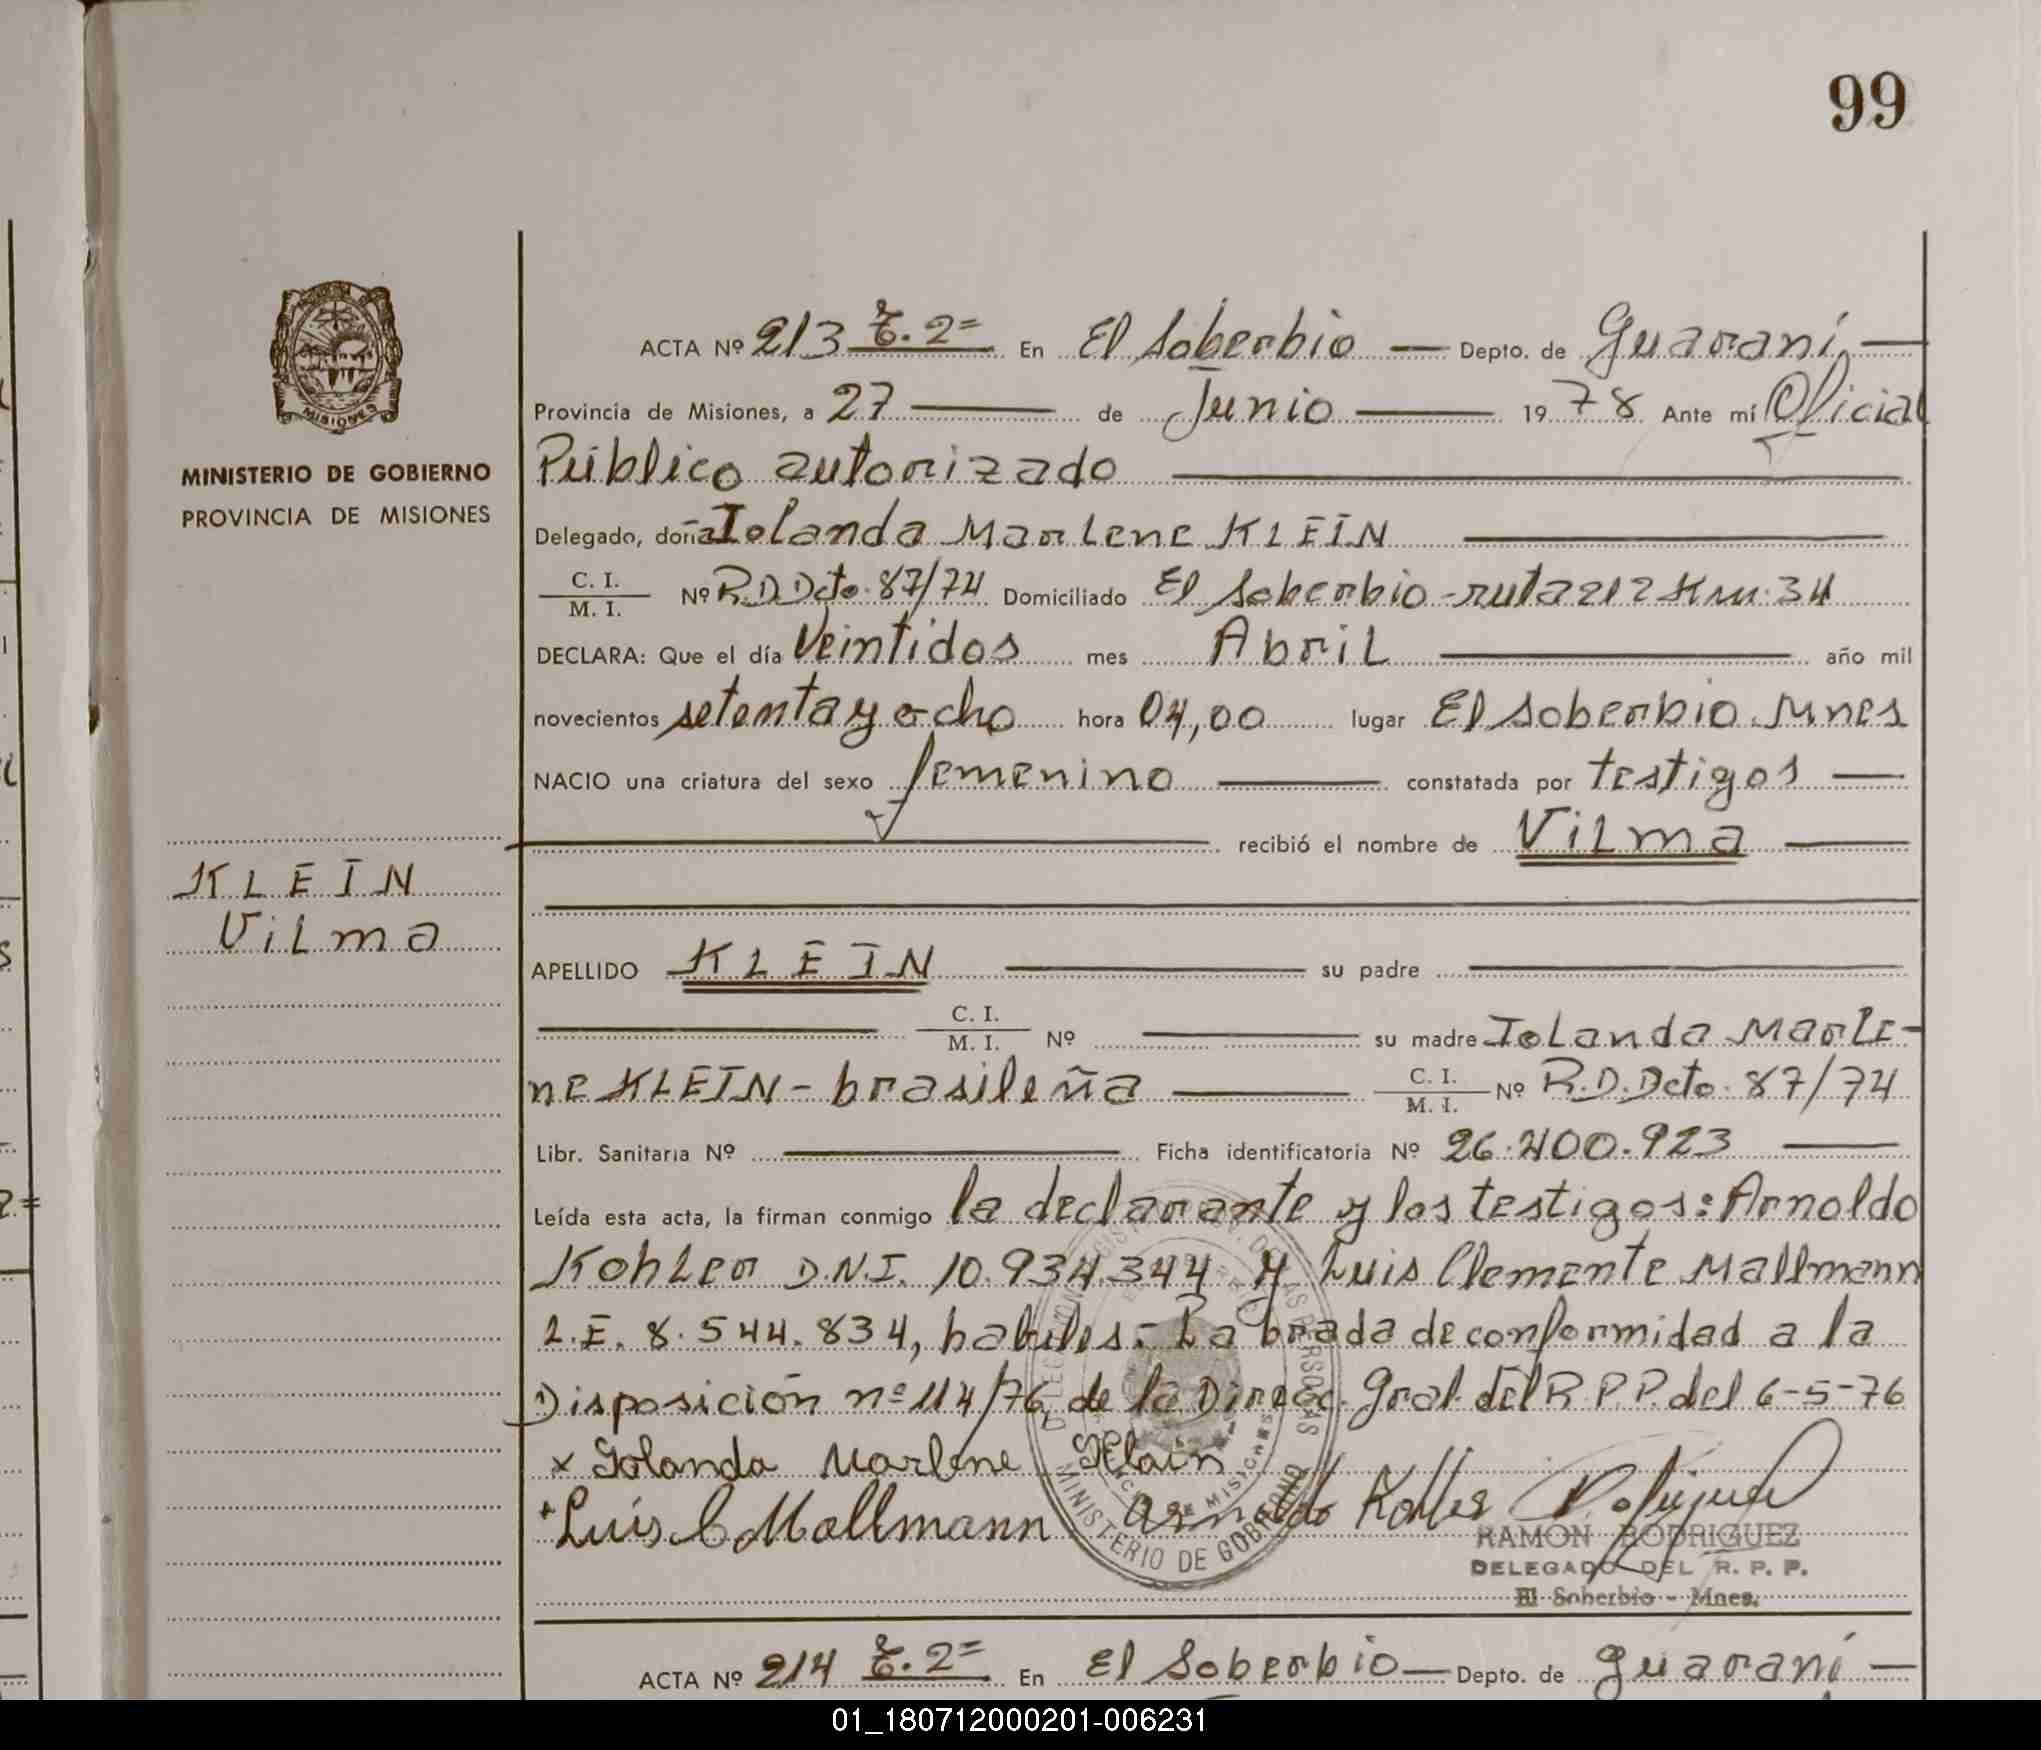 99
ACTA Nº 213 T. 2º En El Soberbio — Depto. de Guaraní —
Provincia de Misiones, a 27 — de Junio — 1978 Ante mí Oficial
MINISTERIO DE GOBIERNO
PROVINCIA DE MISIONES
Público autorizado
Delegado, doña Iolanda Marlene KLEIN
C. I.
M. I. Nº R.D.Dcto. 87/74 Domiciliado El Soberbio - ruta 212 Km. 34
DECLARA: Que el día Veintidos mes Abril año mil
novecientos setenta y ocho hora 04,00 lugar El Soberbio Mnes
NACIO una criatura del sexo femenino constatada por testigos
recibió el nombre de Vilma
KLEIN
Vilma
APELLIDO KLEIN su padre
C. I.
M. I. Nº su madre Iolanda Marle-
ne KLEIN - brasileña C. I.
M. I. Nº R.D.Dcto. 87/74
Libr. Sanitaria Nº Ficha identificatoria Nº 26.400.923
Leída esta acta, la firman conmigo la declarante y los testigos: Arnoldo
Kohler D.N.I. 10.934.344 y Luis Clemente Mallmann
L.E. 8.544.834, habiles.- La brada de conformidad a la
Disposición nº 114/76, de la Direcc. Gral. del R.P.P. del 6-5-76
x Iolanda Marlene Klain
+ Luis C Mallmann Arnoldo Kohler
RAMON RODRIGUEZ
DELEGADO DEL R. P. P.
El Soberbio - Mnes.
MINISTERIO DE GOBIERNO
ACTA Nº 214 T. 2º En El Soberbio — Depto. de Guaraní —
01_180712000201-006231